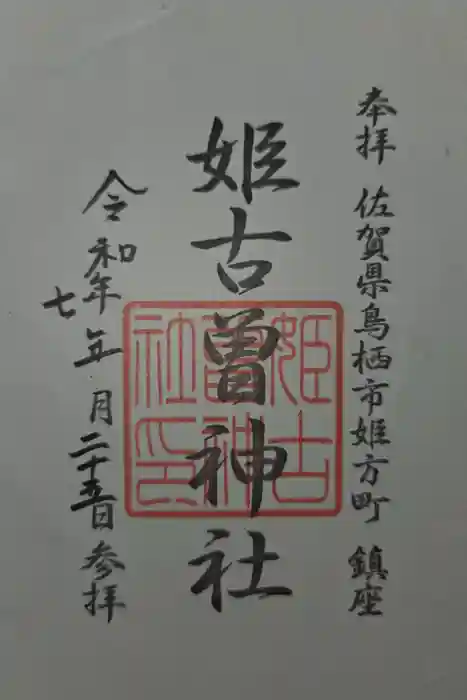 奉拝 佐賀県鳥栖市姫方町 鎮座
姫古曽神社
姫古曽神社印
令和年七年 月二十五日参拝